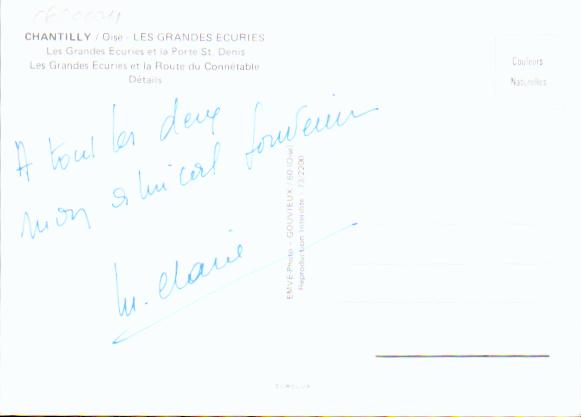 CHANTILLY / Oise - LES GRANDES ECURIES
Les Grandes Ecuries et la Porte St. Denis
Les Grandes Ecuries et la Route du Connétable
Détails
Couleurs
Naturelles
A tous les deux
mon amical souvenir
M. Claire
EMVE-Photo - GOUVIEUX / 60 (Oise)
Reproduction Interdite - 73/2200